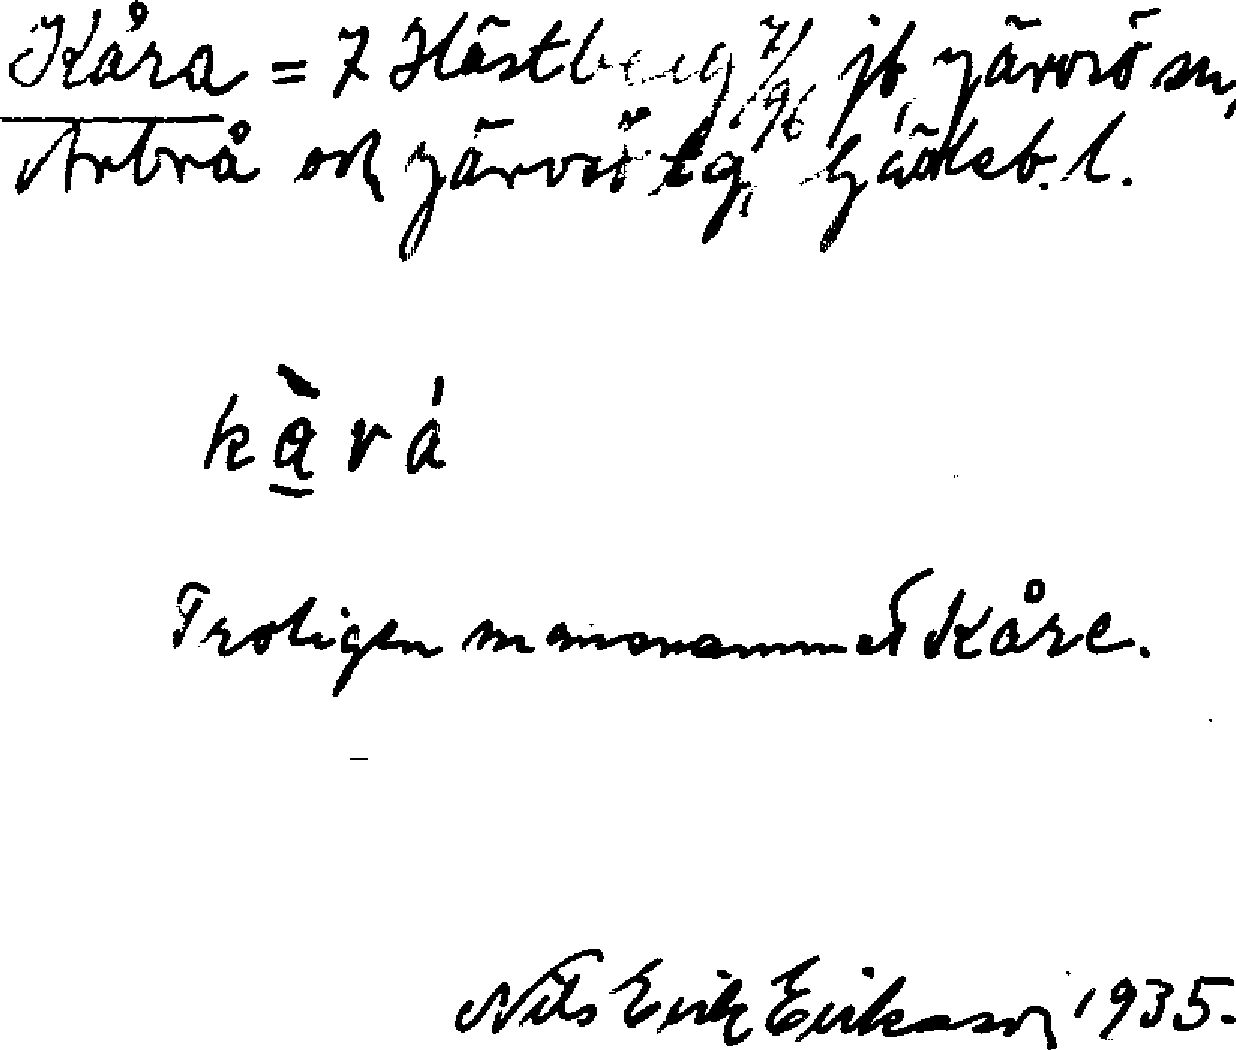 Kåra = 7 Hästberg 7/96 jb, Järvsö sn,
Arbrå och Järvsö tg, Gävleb. l.
kàrá
Troligen mansnamnet Kåre.
Nils Erik Erikson 1935.